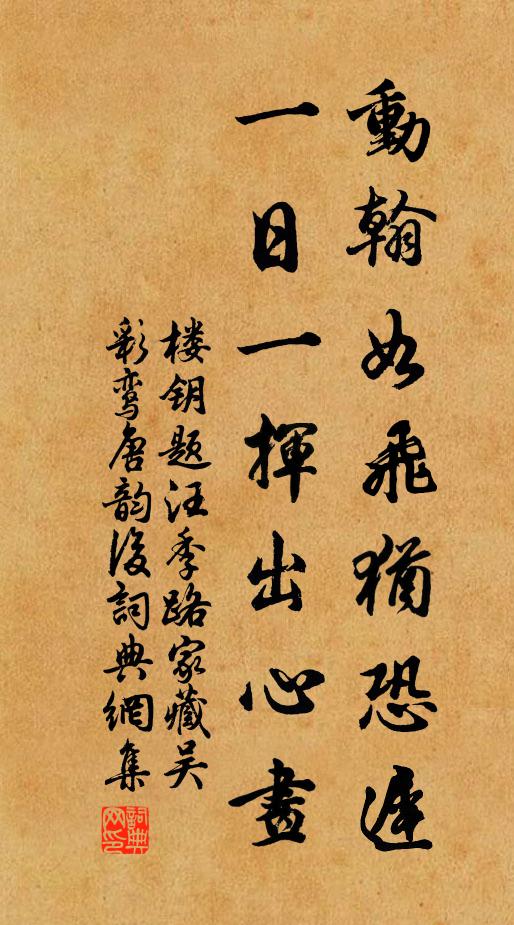 動翰如飛猶恐遲
一日一揮出心畫
楼钥题汪季路家藏吴
彩鸾唐韵後詞典網集
詞典
网印